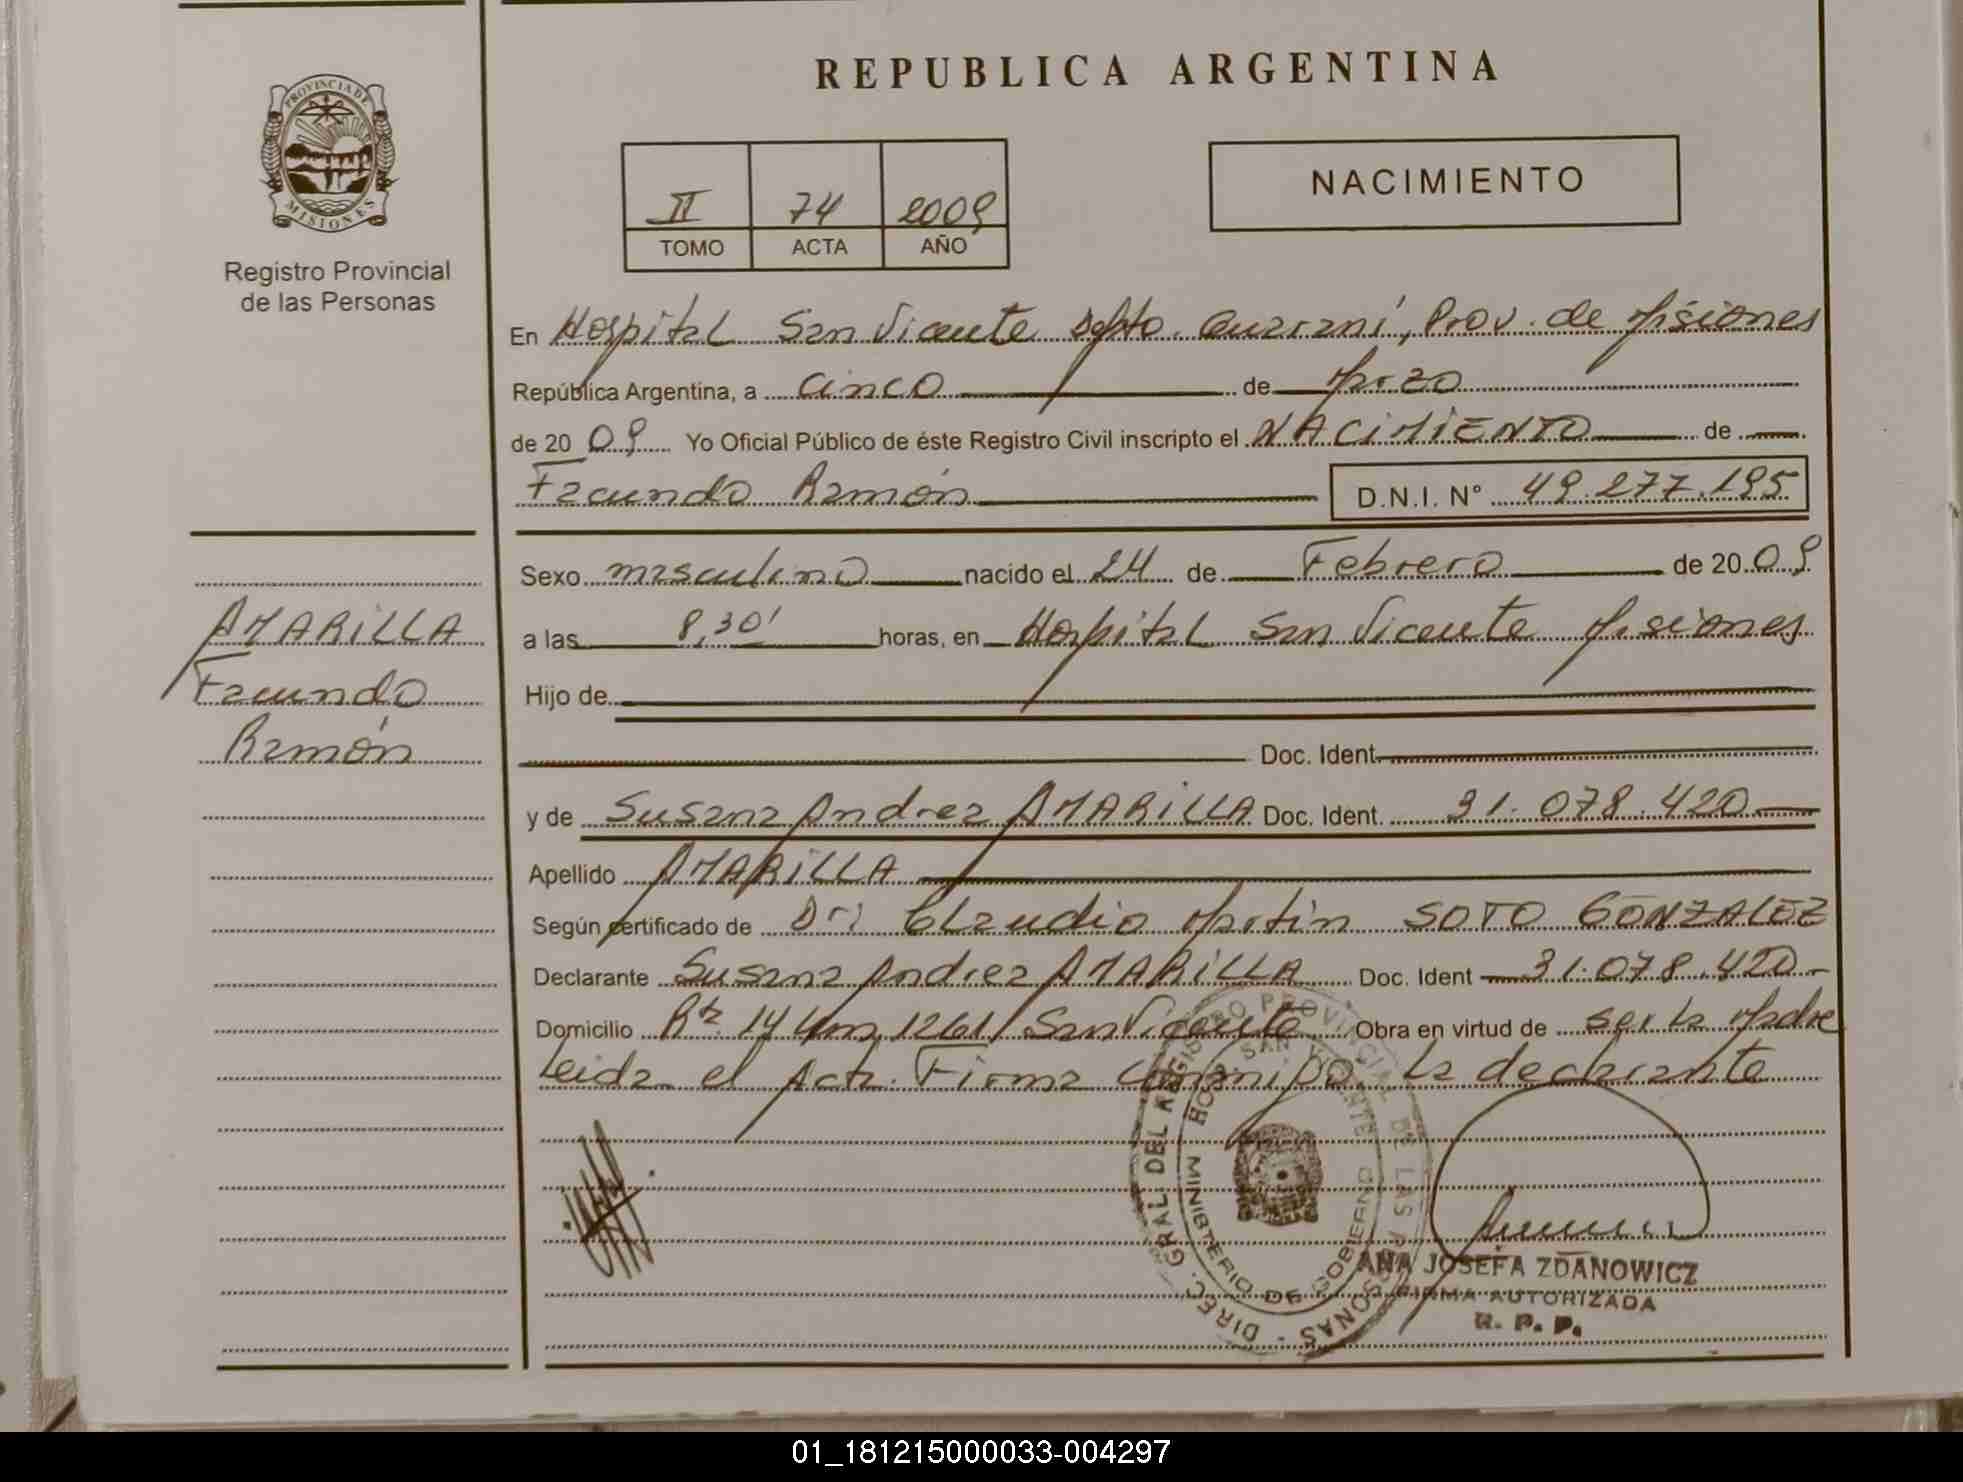 REPUBLICA ARGENTINA
PROVINCIA DE
MISIONES
Registro Provincial
de las Personas
II 74 2009
TOMO ACTA AÑO
NACIMIENTO
En Hospital San Vicente Dpto. Guaraní, Prov. de Misiones
República Argentina, a cinco de Marzo
de 2009 Yo Oficial Público de éste Registro Civil inscripto el NACIMIENTO de
Facundo Ramón D.N.I. N° 49.277.195
Sexo masculino nacido el 24 de Febrero de 2009
AMARILLA
Facundo
Ramón
a las 8,30' horas, en Hospital San Vicente Misiones
Hijo de
Doc. Ident.
y de Susana Andrea AMARILLA Doc. Ident. 31.078.420
Apellido AMARILLA
Según certificado de Dr: Claudio Martin SOTO GONZALEZ
Declarante Susana Andrea AMARILLA Doc. Ident 31.078.420
Domicilio Rta 14 Km 1261 San Vicente Obra en virtud de ser la Madre
Leida el Acta Firma Conmigo la declarante
DIREC. GRAL DEL REGISTRO PROVINCIAL DE LAS PERSONAS
HOSP. SAN VICENTE
MINISTERIO DE GOBIERNO
ANA JOSEFA ZDANOWICZ
FIRMA AUTORIZADA
R. P. P.
01_181215000033-004297